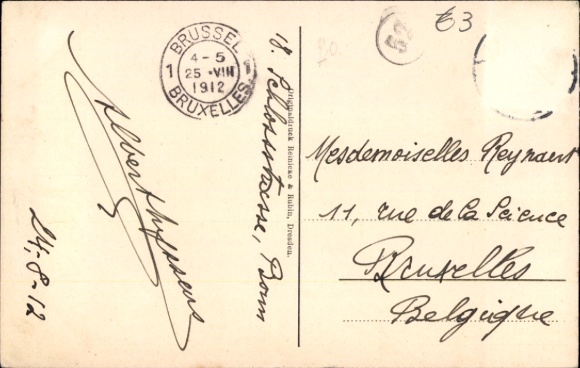 BRUSSEL
4-5
25 ·VIII
1912
1 1
BRUXELLES
18. Schlossstrasse, Bonn
Albert
24-8-12
Originaldruck Reinicke & Rubin, Dresden.
€3
Mesdemoiselles Reynaert
11, rue de la Science
Bruxelles
Belgique